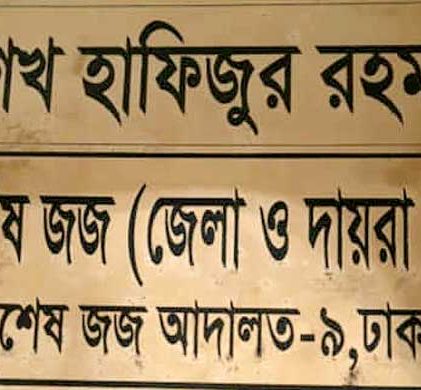 শেখ হাফিজুর রহম
ষ জজ (জেলা ও দায়রা
শেষ জজ আদালত-৯,ঢাক